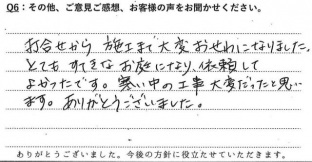 Q6：その他、ご意見ご感想、お客様の声をお聞かせください。
打合せから 施工まで大変おせわになりました。
とても すてきなお庭になり、依頼して
よかったです。寒い中の工事 大変だったと思い
ます。ありがとうございました。
ありがとうございました。今後の方針に役立たせていただきます。